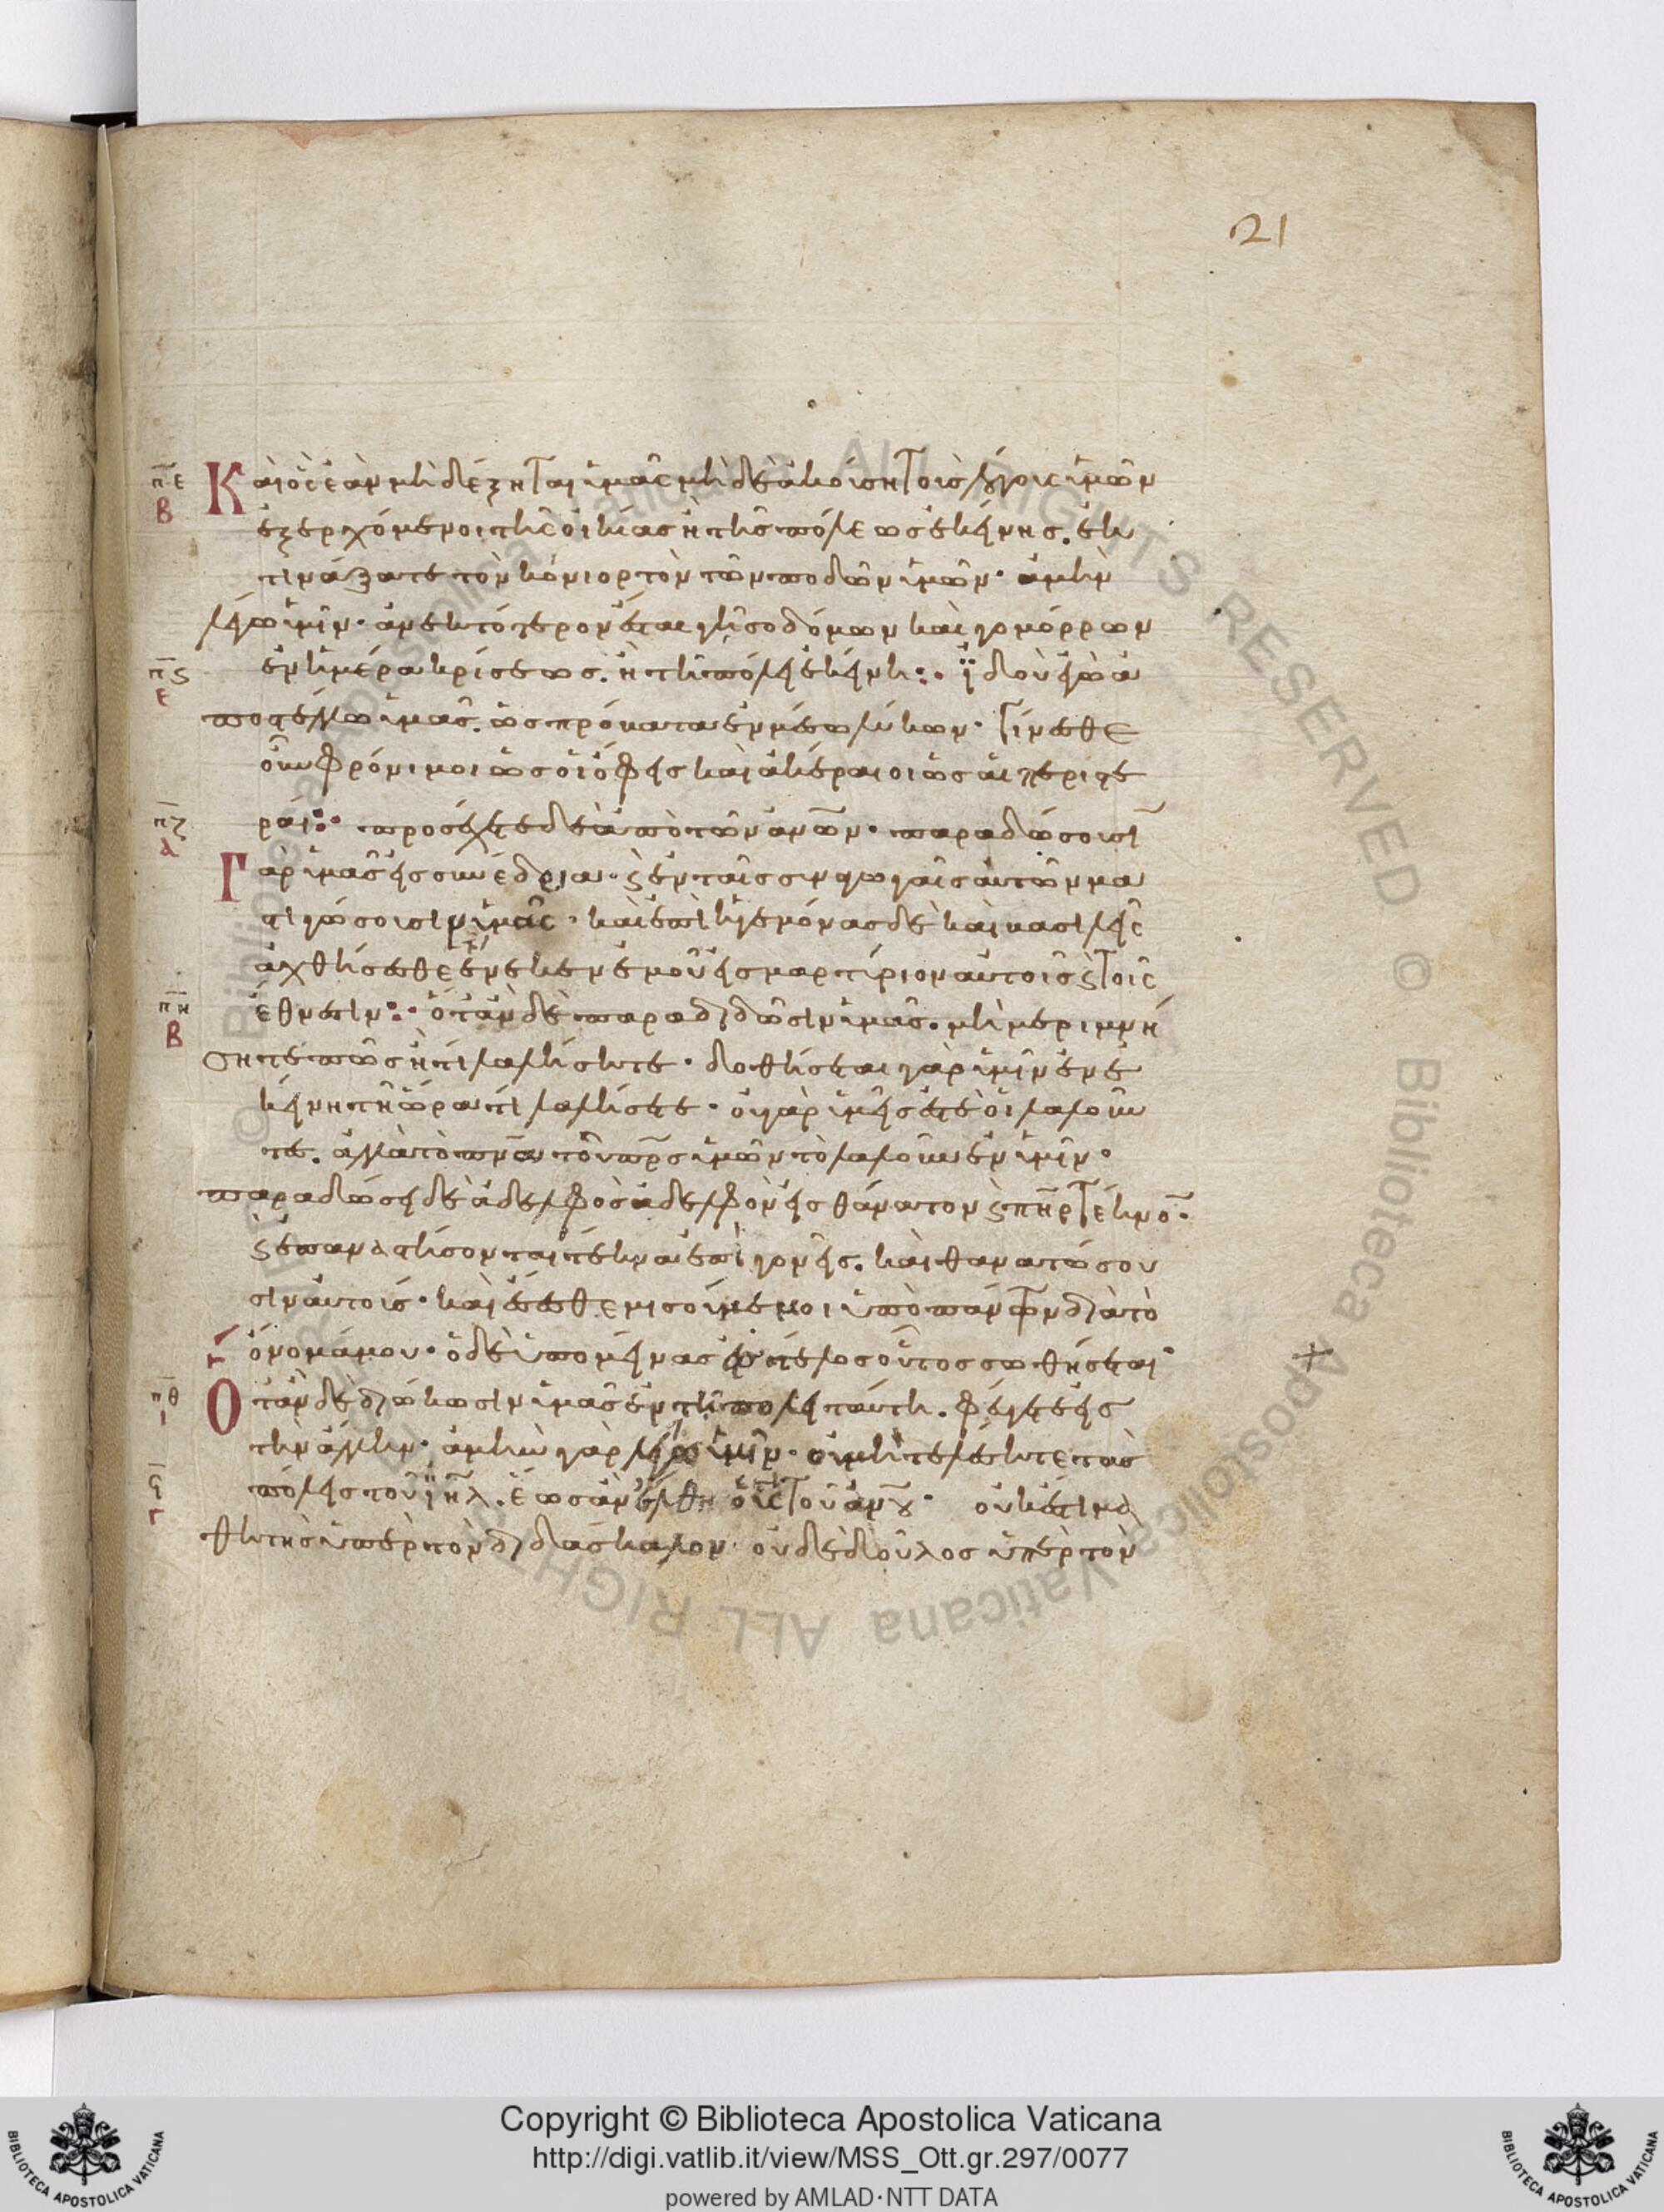 21
π̅ε Β Καὶ ὃς ἐὰν μὴ δέξηται ἱμᾶς μὴ δὲ ἀκούση τοὺς λόγοις ἱμῶν
ἐξερχόμενοι τῆς οἰκίας ἢ τῆς πόλεως ἐκείνης. ἐκ
τινάξατε τὸν κόνιορτὸν τῶν ποδῶν ἱμῶν· ἀμὴν
λέγω ἱμῖν· ἀνεκτότερον ἔσται γῆ σοδόμων καὶ γομόρρων
ἐν ἡμέρα κρίσεως. ἢ τῆ πόλει ἐκείνη :· ἰδοὺ ἐγὼ ἀ
π̅ς Ε
ποστέλλω ἱμᾶς. ὡς πρόβατα ἐν μέσω λύκων· Γίνεσθε
οὖν φρόνιμοι ὡς οἱ ὄφεις καὶ ἀκέραιοι ὡς αἱ περιστε
ραί :· προσέχετε δὲ ἀπὸ τῶν ἀνῶν· παραδώσουσι
π̅ζ α
Γὰρ ἱμᾶς εἰς συνέδρια· ϛ ἐν ταῖς συναγωγαῖς αὐτῶν μα
στιγώσουσιν ἱμᾶς· καὶ ἐπὶ ἡγεμόνας δὲ καὶ βασιλεῖς
ἀχθήσεσθε ἕνεκεν ἐμοῦ εἰς μαρτίριον αὐτοῖς ϛ τοῖς
π̅η Β ἔθνεσιν :· ὅταν δὲ παραδιδῶσιν ἱμᾶς. μὴ μεριμνή
σητε πῶς ἢ τί λαλήσητε· δοθήσεται γὰρ ἱμῖν ἐν ἐ
κείνη τῆ ὥρα τί λαλήσετε· οὐ γὰρ ἱμεῖς ἐστὲ οἱ λαλοῦν
τε. ἀλλὰ τὸ πνα τοῦ πρς ἱμῶν τὸ λαλοῦν ἐν ἱμῖν·
παραδώσει δὲ ἀδελφὸς ἀδελφὸν εἰς θάνατον ϛ πηρ τέκνο·
ϛ ἐπαναστήσονται τέκνα ἐπὶ γονεῖς. καὶ θανατώσου
σιν αὐτούς· καὶ ἔσεσθε μισούμενοι ὑπὸ πάντων διὰ τὸ
ὄνομά μου· ὁ δὲ ὑπομείνας εἰς τέλος οὗτος σωθήσεται
π̅θ Ι Ὅταν δὲ διώκωσιν ἱμᾶς ἐν τῆ πόλει ταύτη. φεύγετε εἰς
τὴν ἄλλην· ἀμὴν γὰρ λέγω ἱμῖν· οὐ μὴ τελέσητε τὰς
πόλεις τοῦ ἰηλ. ἕως ἂν ἔλθη ὁ υἱς τοῦ ἀνου· οὐκ ἔστι μα
θητὴς ὑπὲρ τὸν διδάσκαλον· οὐδὲ δοῦλος ὑπὲρ τὸν
Copyright © Biblioteca Apostolica Vaticana
http://digi.vatlib.it/view/MSS_Ott.gr.297/0077
powered by AMLAD·NTT DATA
BIBLIOTECA APOSTOLICA VATICANA
BIBLIOTECA APOSTOLICA VATICANA